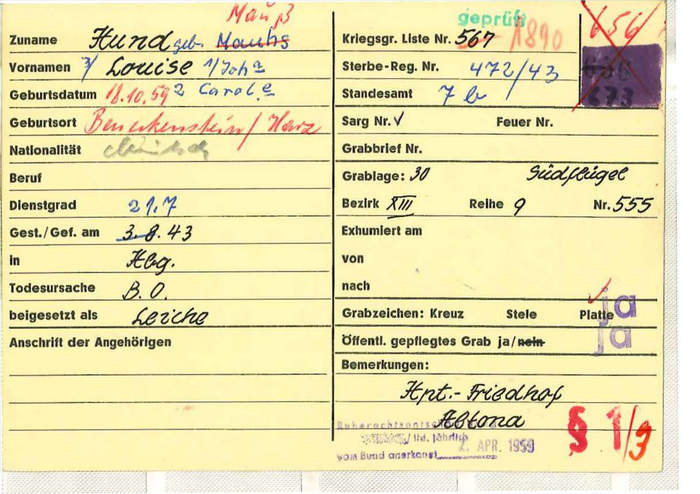 Mauß
Zuname Hund geb. Mauhs
Vornamen 3/ Louise 1/Joh a
Geburtsdatum 18.10.59 2 Carol e
Geburtsort Benneckenstein / Harz
Nationalität
Beruf
Dienstgrad 21.7
Gest./Gef. am 3.8.43
in Hbg.
Todesursache B.O.
beigesetzt als Leiche
Anschrift der Angehörigen
geprüft
Kriegsgr. Liste Nr. 567 1890
656/
Sterbe-Reg. Nr. 472/43
636
Standesamt 7b
673
Sarg Nr. Feuer Nr.
Grabbrief Nr.
Grablage: 30 Südflügel
Bezirk XIII Reihe 9 Nr. 555
Exhumiert am
von
nach
Grabzeichen: Kreuz Stele Platte ja
Öffentl. gepflegtes Grab ja/nein ja
Bemerkungen:
Hpt.-Friedhof
Altona
§ 1/3
/ lfd. jährlich
vom Bund anerkannt 2. APR. 1959